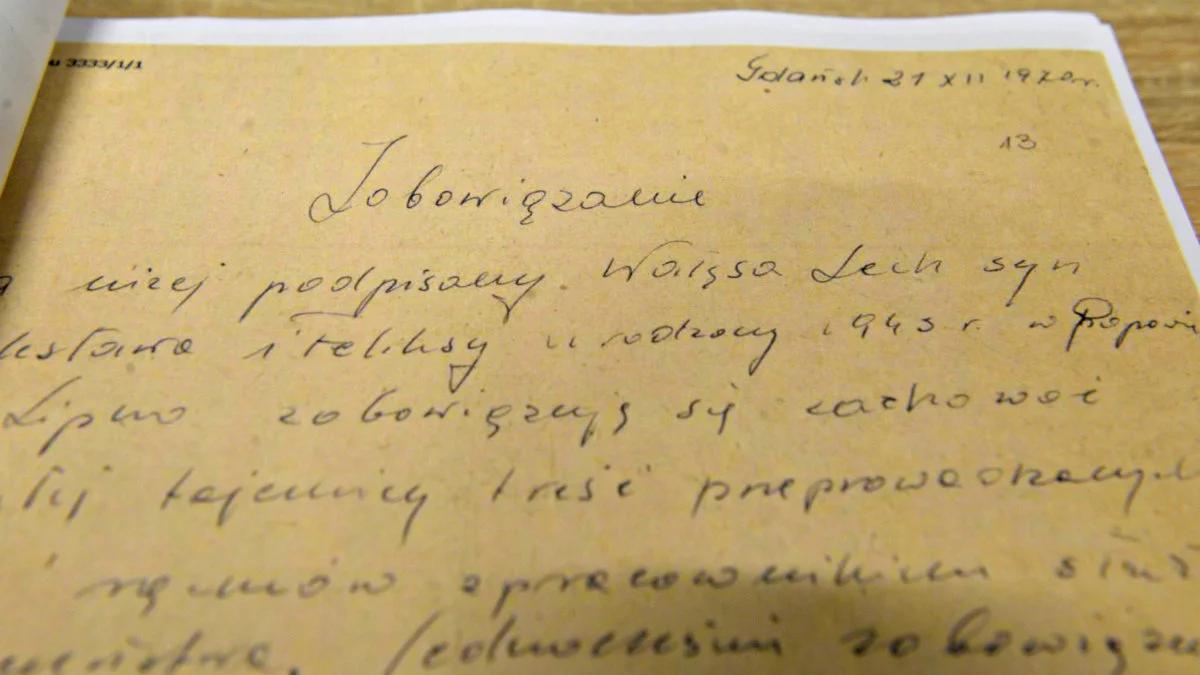 3333/1/1
Gdańsk 21 XII 1970r.
13
Zobowiązanie
niżej podpisany Wałęsa Lech syn
i Feliksy urodzony 1943 r. w Popowi
Lipno zobowiązuję się zachować
tajemnicy treść przeprowadzanych
z pracownikiem służ
Jednocześnie zobowiązu